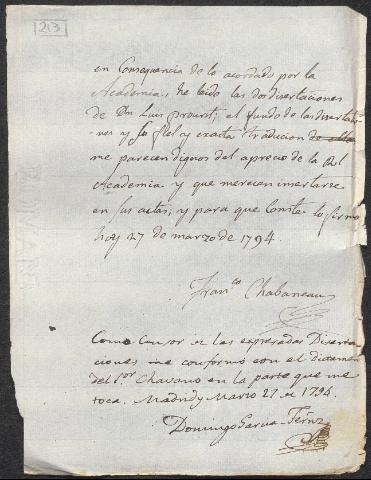 213
en Consequencia de lo acordado por la
Academia, he leido las dos disertaciones
de Dn Luis proust; el fondo de las disertatio-
nes y su fiel y exacta traducion de ellas
me parecen dignos del aprecio de la Rl
Academia y que merecen insertarse
en sus actas; y para que Conste lo firmo
hoy 27 de marzo de 1794
Franco Chabaneau
Como Censor de las expresadas Diserta
ciones me conformo con el dictamen
del Sor Chavano en la parte que me
toca. Madrid y Marzo 27 de 1794.
Domingo Garcia Fernz